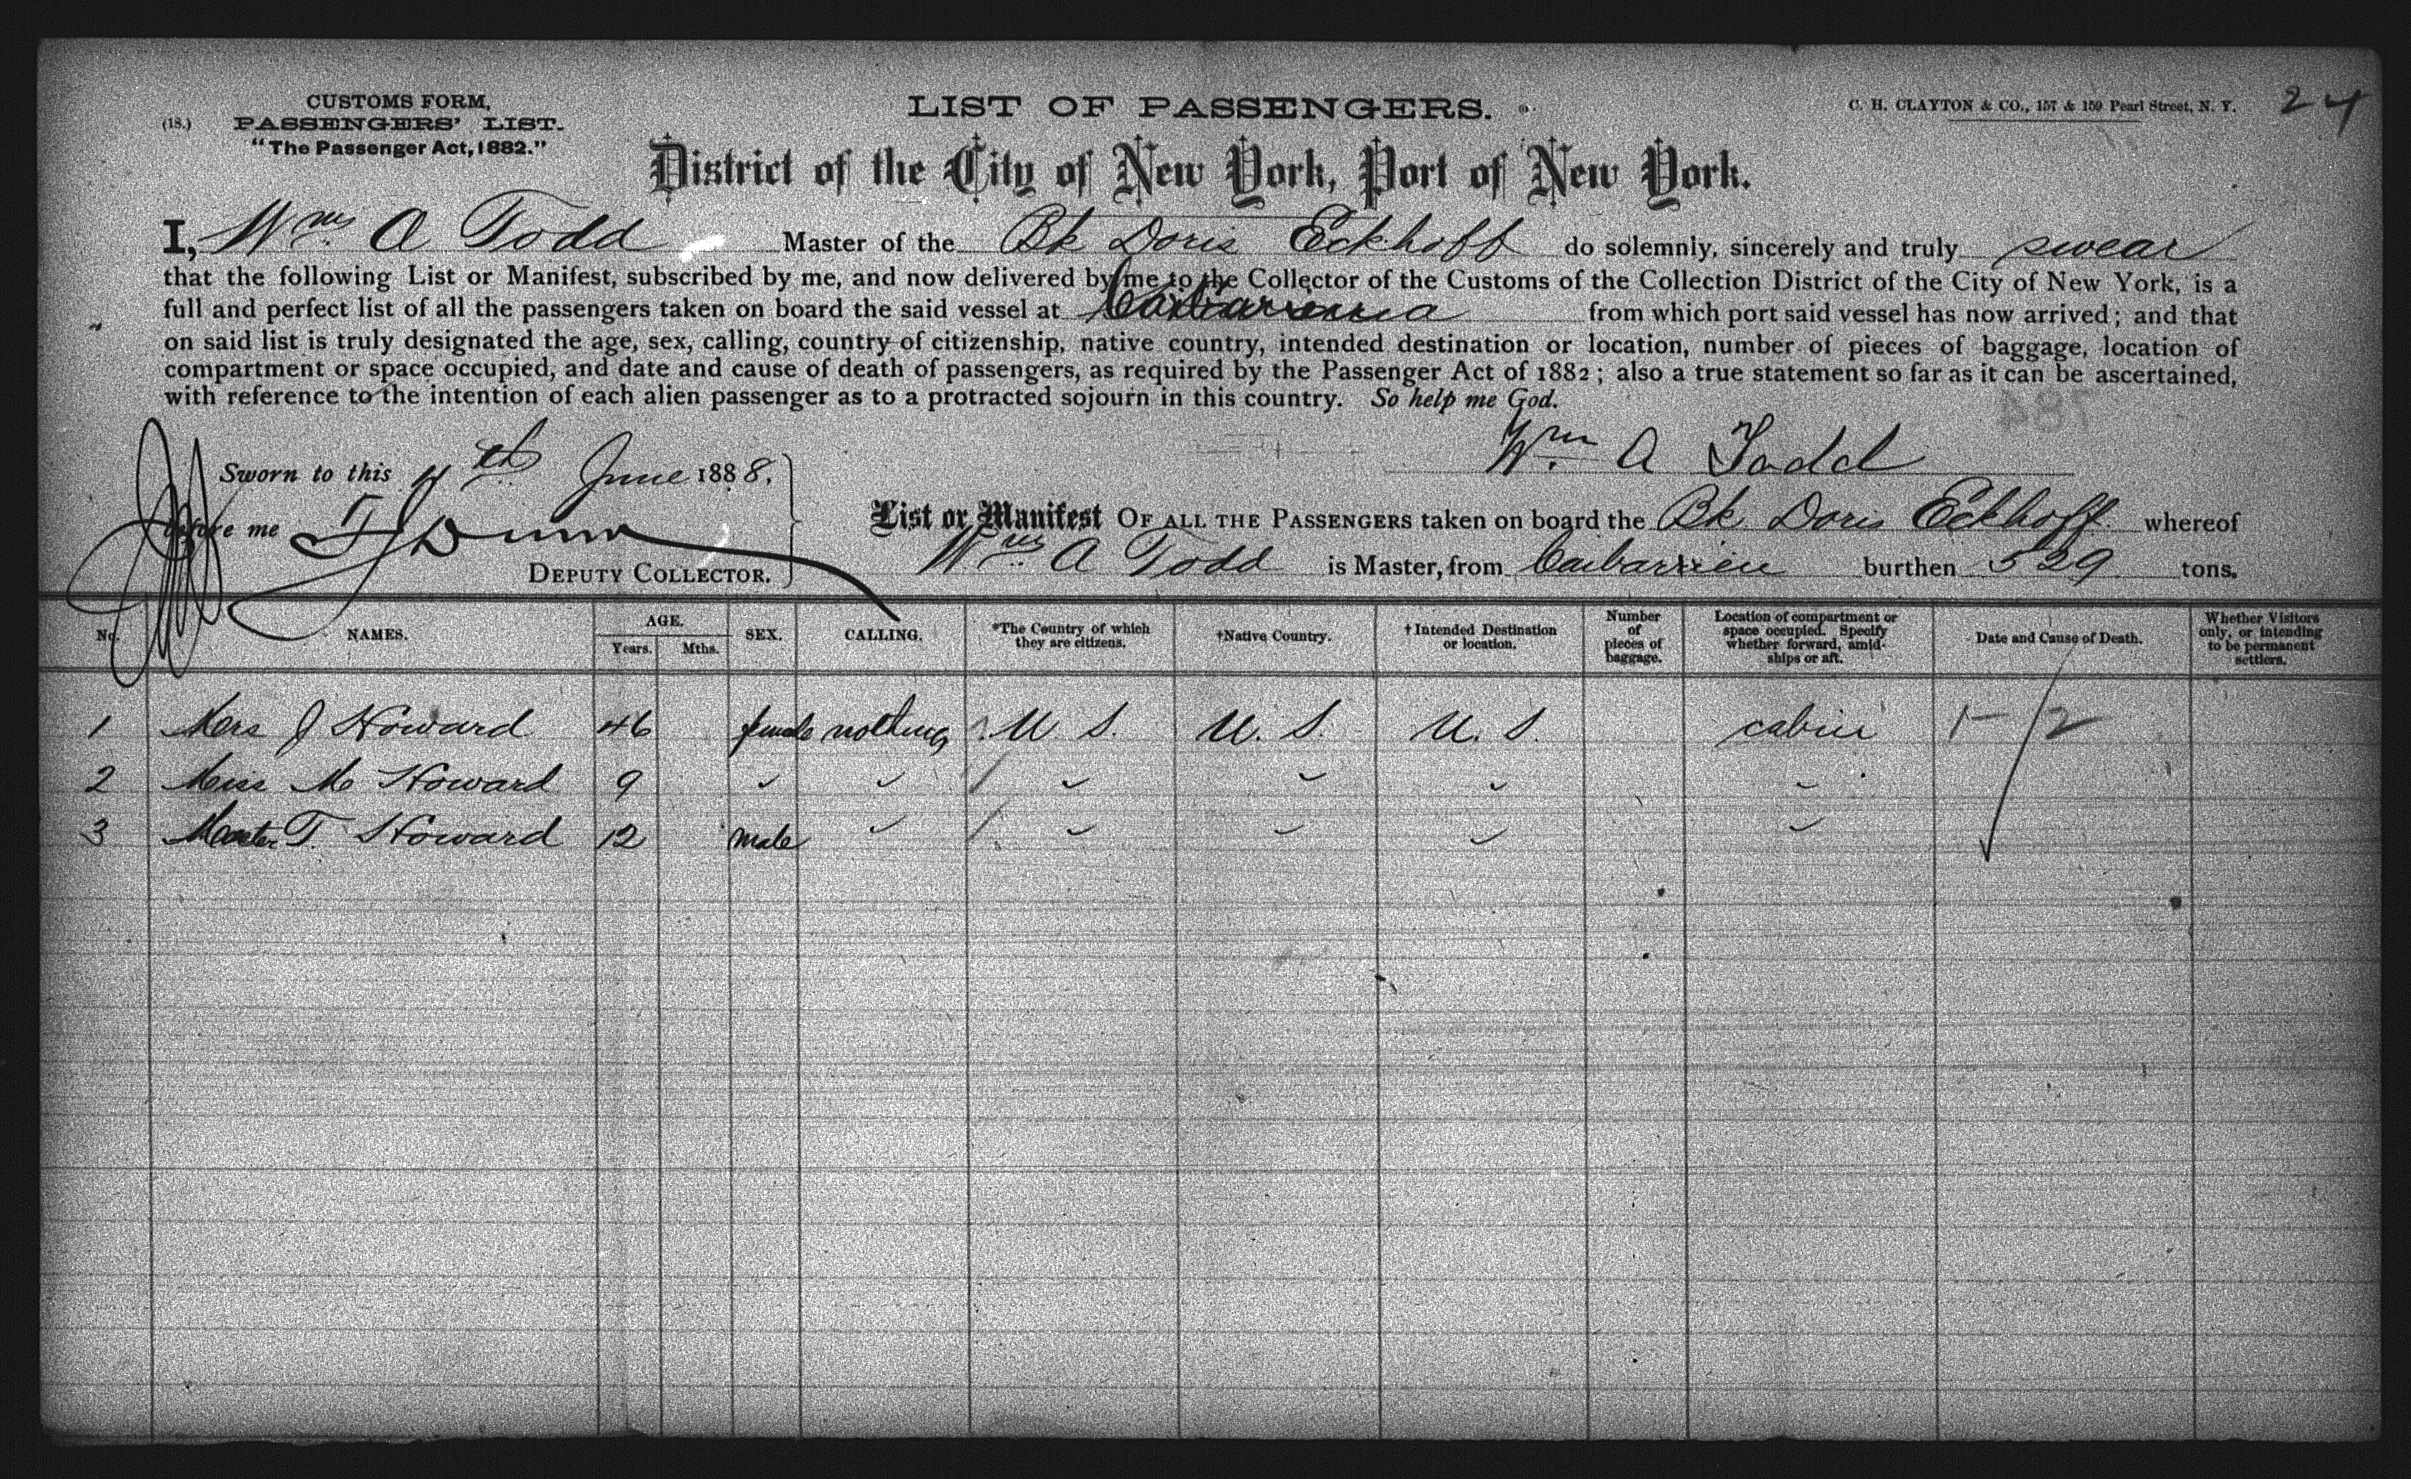 CUSTOMS FORM,
(18.) PASSENGERS' LIST.
"The Passenger Act, 1882."
LIST OF PASSENGERS.
C. H. CLAYTON & CO., 157 & 159 Pearl Street, N. Y.
24
District of the City of New York, Port of New York.
I, Wm. A Todd Master of the Bk Doris Eckhoff do solemnly, sincerely and truly swear
that the following List or Manifest, subscribed by me, and now delivered by me to the Collector of the Customs of the Collection District of the City of New York, is a
full and perfect list of all the passengers taken on board the said vessel at from which port said vessel has now arrived; and that
on said list is truly designated the age, sex, calling, country of citizenship, native country, intended destination or location, number of pieces of baggage, location of
compartment or space occupied, and date and cause of death of passengers, as required by the Passenger Act of 1882; also a true statement so far as it can be ascertained,
with reference to the intention of each alien passenger as to a protracted sojourn in this country. So help me God.
Wm. A Todd
Sworn to this th June 1888.
before me
DEPUTY COLLECTOR.
List or Manifest OF ALL THE PASSENGERS taken on board the Bk Doris Eckhoff whereof
Wm. A Todd is Master, from Caibarien burthen 529 tons.
No. NAMES. AGE. Years. Mths. SEX. CALLING. *The Country of which they are citizens. †Native Country. †Intended Destination or location. Number of pieces of baggage. Location of compartment or space occupied. Specify whether forward, amidships or aft. Date and Cause of Death. Whether Visitors only, or intending to be permanent settlers.
1 Mrs J Howard 46 female nothing U S. U. S. U. S. cabin 1-12
2 Miss M Howard 9
3 Master T. Howard 12 male